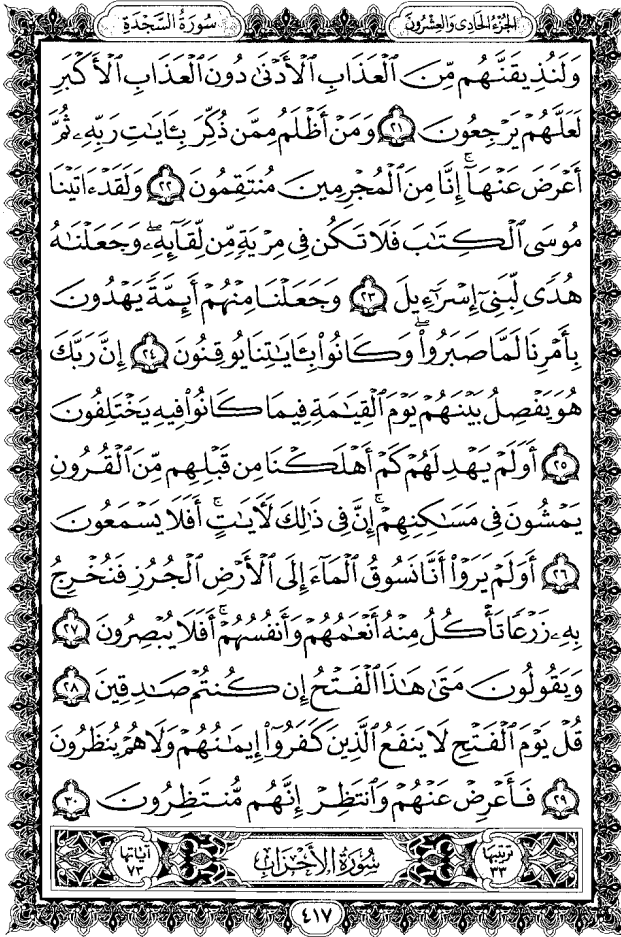 الجزء الحادي والعشرون سورة السجدة
وَلَنُذِيقَنَّهُم مِّنَ ٱلْعَذَابِ ٱلْأَدْنَىٰ دُونَ ٱلْعَذَابِ ٱلْأَكْبَرِ
لَعَلَّهُمْ يَرْجِعُونَ ٢١ وَمَنْ أَظْلَمُ مِمَّن ذُكِّرَ بِـَٔايَـٰتِ رَبِّهِۦ ثُمَّ
أَعْرَضَ عَنْهَآ ۚ إِنَّا مِنَ ٱلْمُجْرِمِينَ مُنتَقِمُونَ ٢٢ وَلَقَدْ ءَاتَيْنَا
مُوسَى ٱلْكِتَـٰبَ فَلَا تَكُن فِى مِرْيَةٍ مِّن لِّقَآئِهِۦ ۖ وَجَعَلْنَـٰهُ
هُدًى لِّبَنِىٓ إِسْرَٰٓءِيلَ ٢٣ وَجَعَلْنَا مِنْهُمْ أَئِمَّةً يَهْدُونَ
بِأَمْرِنَا لَمَّا صَبَرُوا۟ ۖ وَكَانُوا۟ بِـَٔايَـٰتِنَا يُوقِنُونَ ٢٤ إِنَّ رَبَّكَ
هُوَ يَفْصِلُ بَيْنَهُمْ يَوْمَ ٱلْقِيَـٰمَةِ فِيمَا كَانُوا۟ فِيهِ يَخْتَلِفُونَ
٢٥ أَوَلَمْ يَهْدِ لَهُمْ كَمْ أَهْلَكْنَا مِن قَبْلِهِم مِّنَ ٱلْقُرُونِ
يَمْشُونَ فِى مَسَـٰكِنِهِمْ ۚ إِنَّ فِى ذَٰلِكَ لَـَٔايَـٰتٍ ۖ أَفَلَا يَسْمَعُونَ
٢٦ أَوَلَمْ يَرَوْا۟ أَنَّا نَسُوقُ ٱلْمَآءَ إِلَى ٱلْأَرْضِ ٱلْجُرُزِ فَنُخْرِجُ
بِهِۦ زَرْعًا تَأْكُلُ مِنْهُ أَنْعَـٰمُهُمْ وَأَنفُسُهُمْ ۖ أَفَلَا يُبْصِرُونَ ٢٧
وَيَقُولُونَ مَتَىٰ هَـٰذَا ٱلْفَتْحُ إِن كُنتُمْ صَـٰدِقِينَ ٢٨
قُلْ يَوْمَ ٱلْفَتْحِ لَا يَنفَعُ ٱلَّذِينَ كَفَرُوٓا۟ إِيمَـٰنُهُمْ وَلَا هُمْ يُنظَرُونَ
٢٩ فَأَعْرِضْ عَنْهُمْ وَٱنتَظِرْ إِنَّهُم مُّنتَظِرُونَ ٣٠
ترتيبها ٣٣ سورة الأحزاب آياتها ٧٣
٤١٧